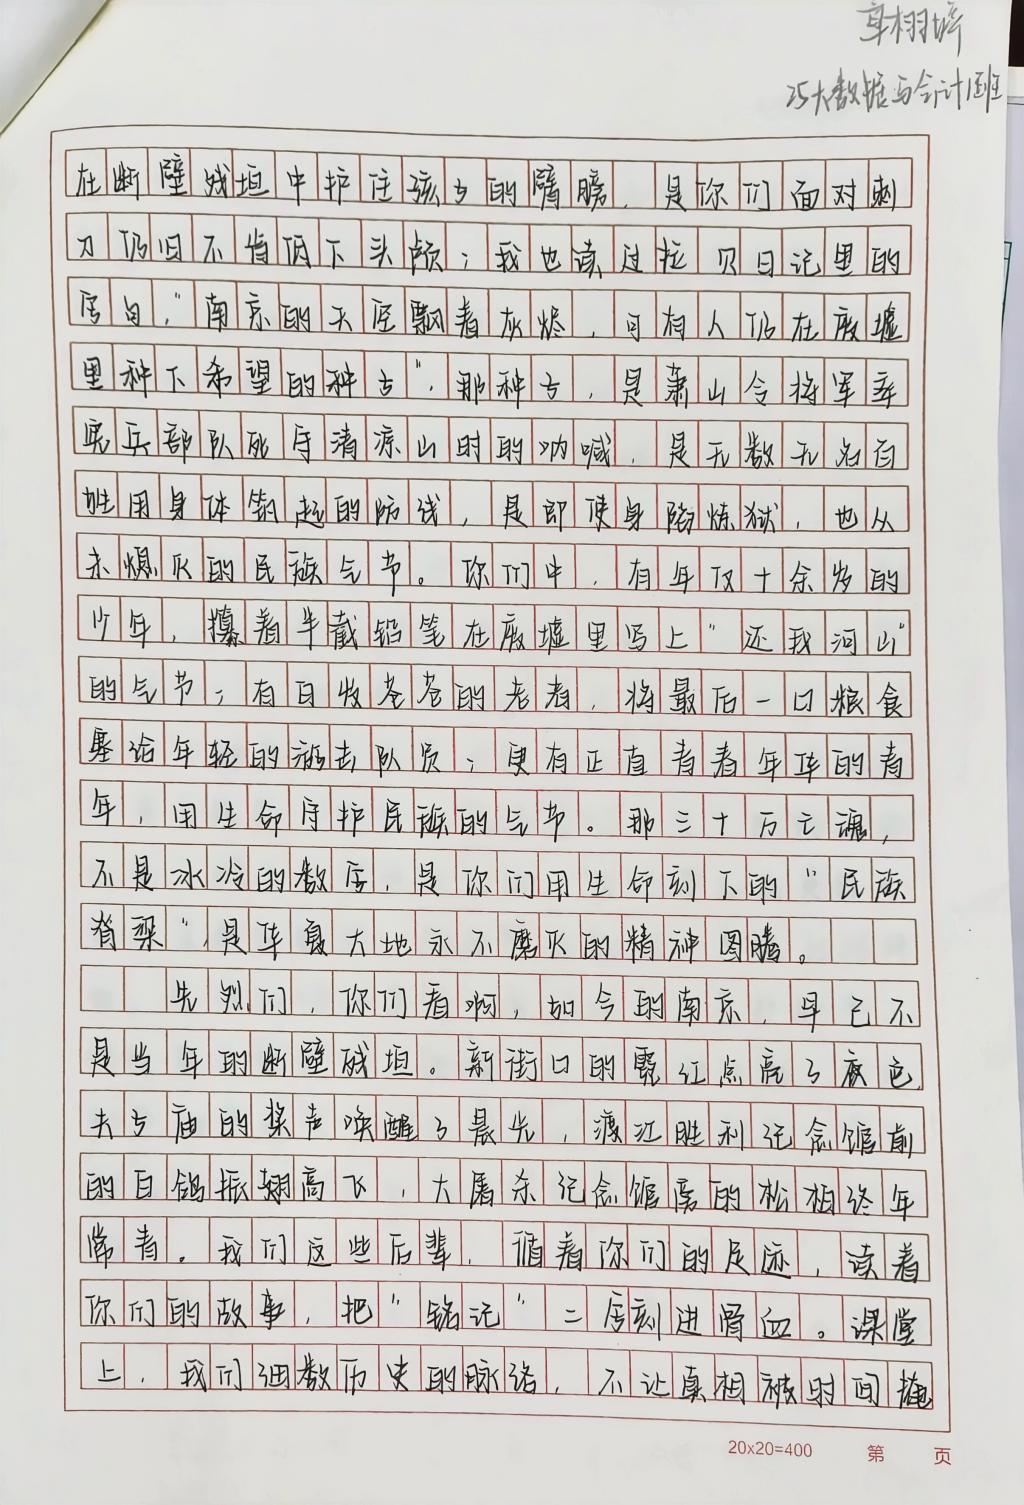 25大数据与会计1班
在断壁残垣中护住孩子的臂膀，是你们面对刺
刀仍旧不肯低下头颅；我也读过拉贝日记里的
字句，"南京的天空飘着灰烬，可有人仍在废墟
里种下希望的种子"，那种子，是萧山令将军率
宪兵部队死守清凉山时的呐喊，是无数无名百
姓用身体筑起的防线，是即使身陷炼狱，也从
未熄灭的民族气节。你们中，有年仅十余岁的
少年，攥着半截铅笔在废墟里写上"还我河山"
的气节；有白发苍苍的老者，将最后一口粮食
塞给年轻的游击队员；更有正直青春年华的青
年，用生命守护民族的气节。那三十万亡魂，
不是冰冷的数字，是你们用生命刻下的"民族
脊梁"，是华夏大地永不磨灭的精神图腾。
先烈们，你们看啊，如今的南京，早已不
是当年的断壁残垣。新街口的霓虹点亮了夜色
夫子庙的桨声唤醒了晨光，渡江胜利纪念馆前
的白鸽振翅高飞，大屠杀纪念馆旁的松柏终年
常青。我们这些后辈，循着你们的足迹，读着
你们的故事，把"铭记"二字刻进骨血。课堂
上，我们细数历史的脉络，不让真相被时间掩
20x20=400 第 页